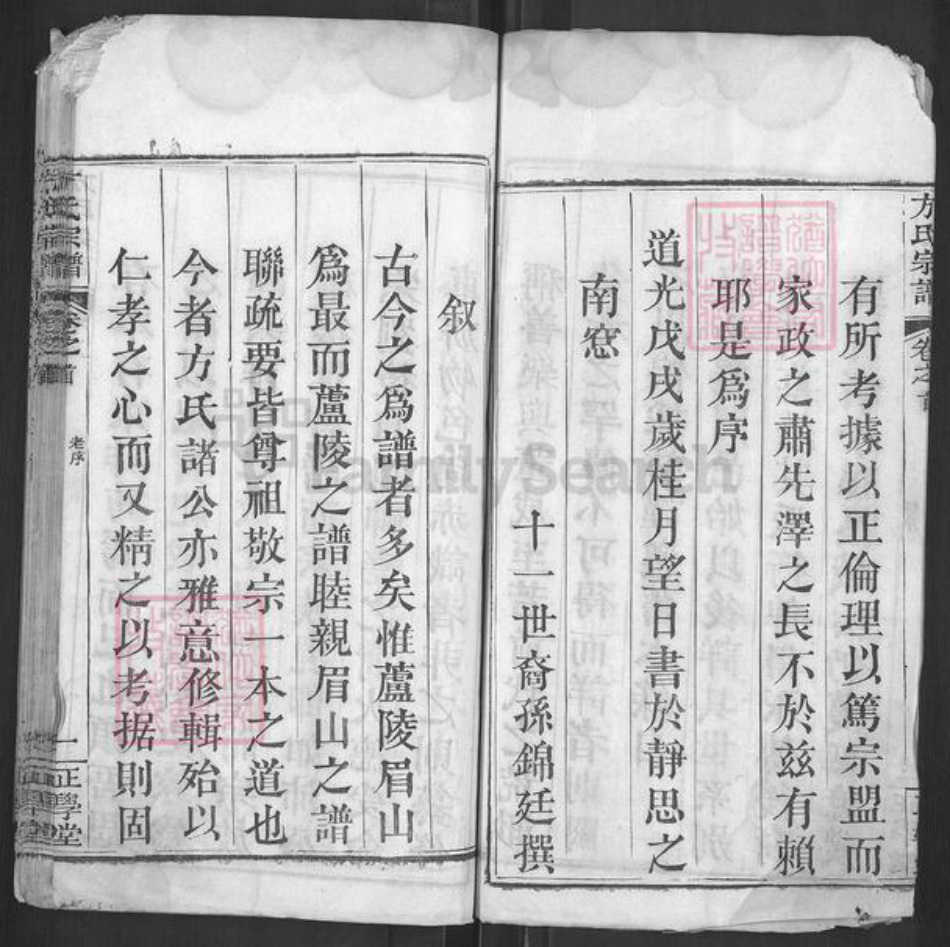 方氏宗譜
卷之首
有所考據以正倫理以篤宗盟而
家政之肅先澤之長不於兹有賴
耶是爲序
道光戊戌歲桂月望日書於靜思之
南窻
十一世裔孫錦廷撰
叙
古今之爲譜者多矣惟蘆陵眉山
爲最而蘆陵之譜睦親眉山之譜
聯疏要皆尊祖敬宗一本之道也
今者方氏諸公亦雅意修輯殆以
仁孝之心而又精之以考据則固
氏宗譜
卷之首
老序
一
正學堂
FamilySearch